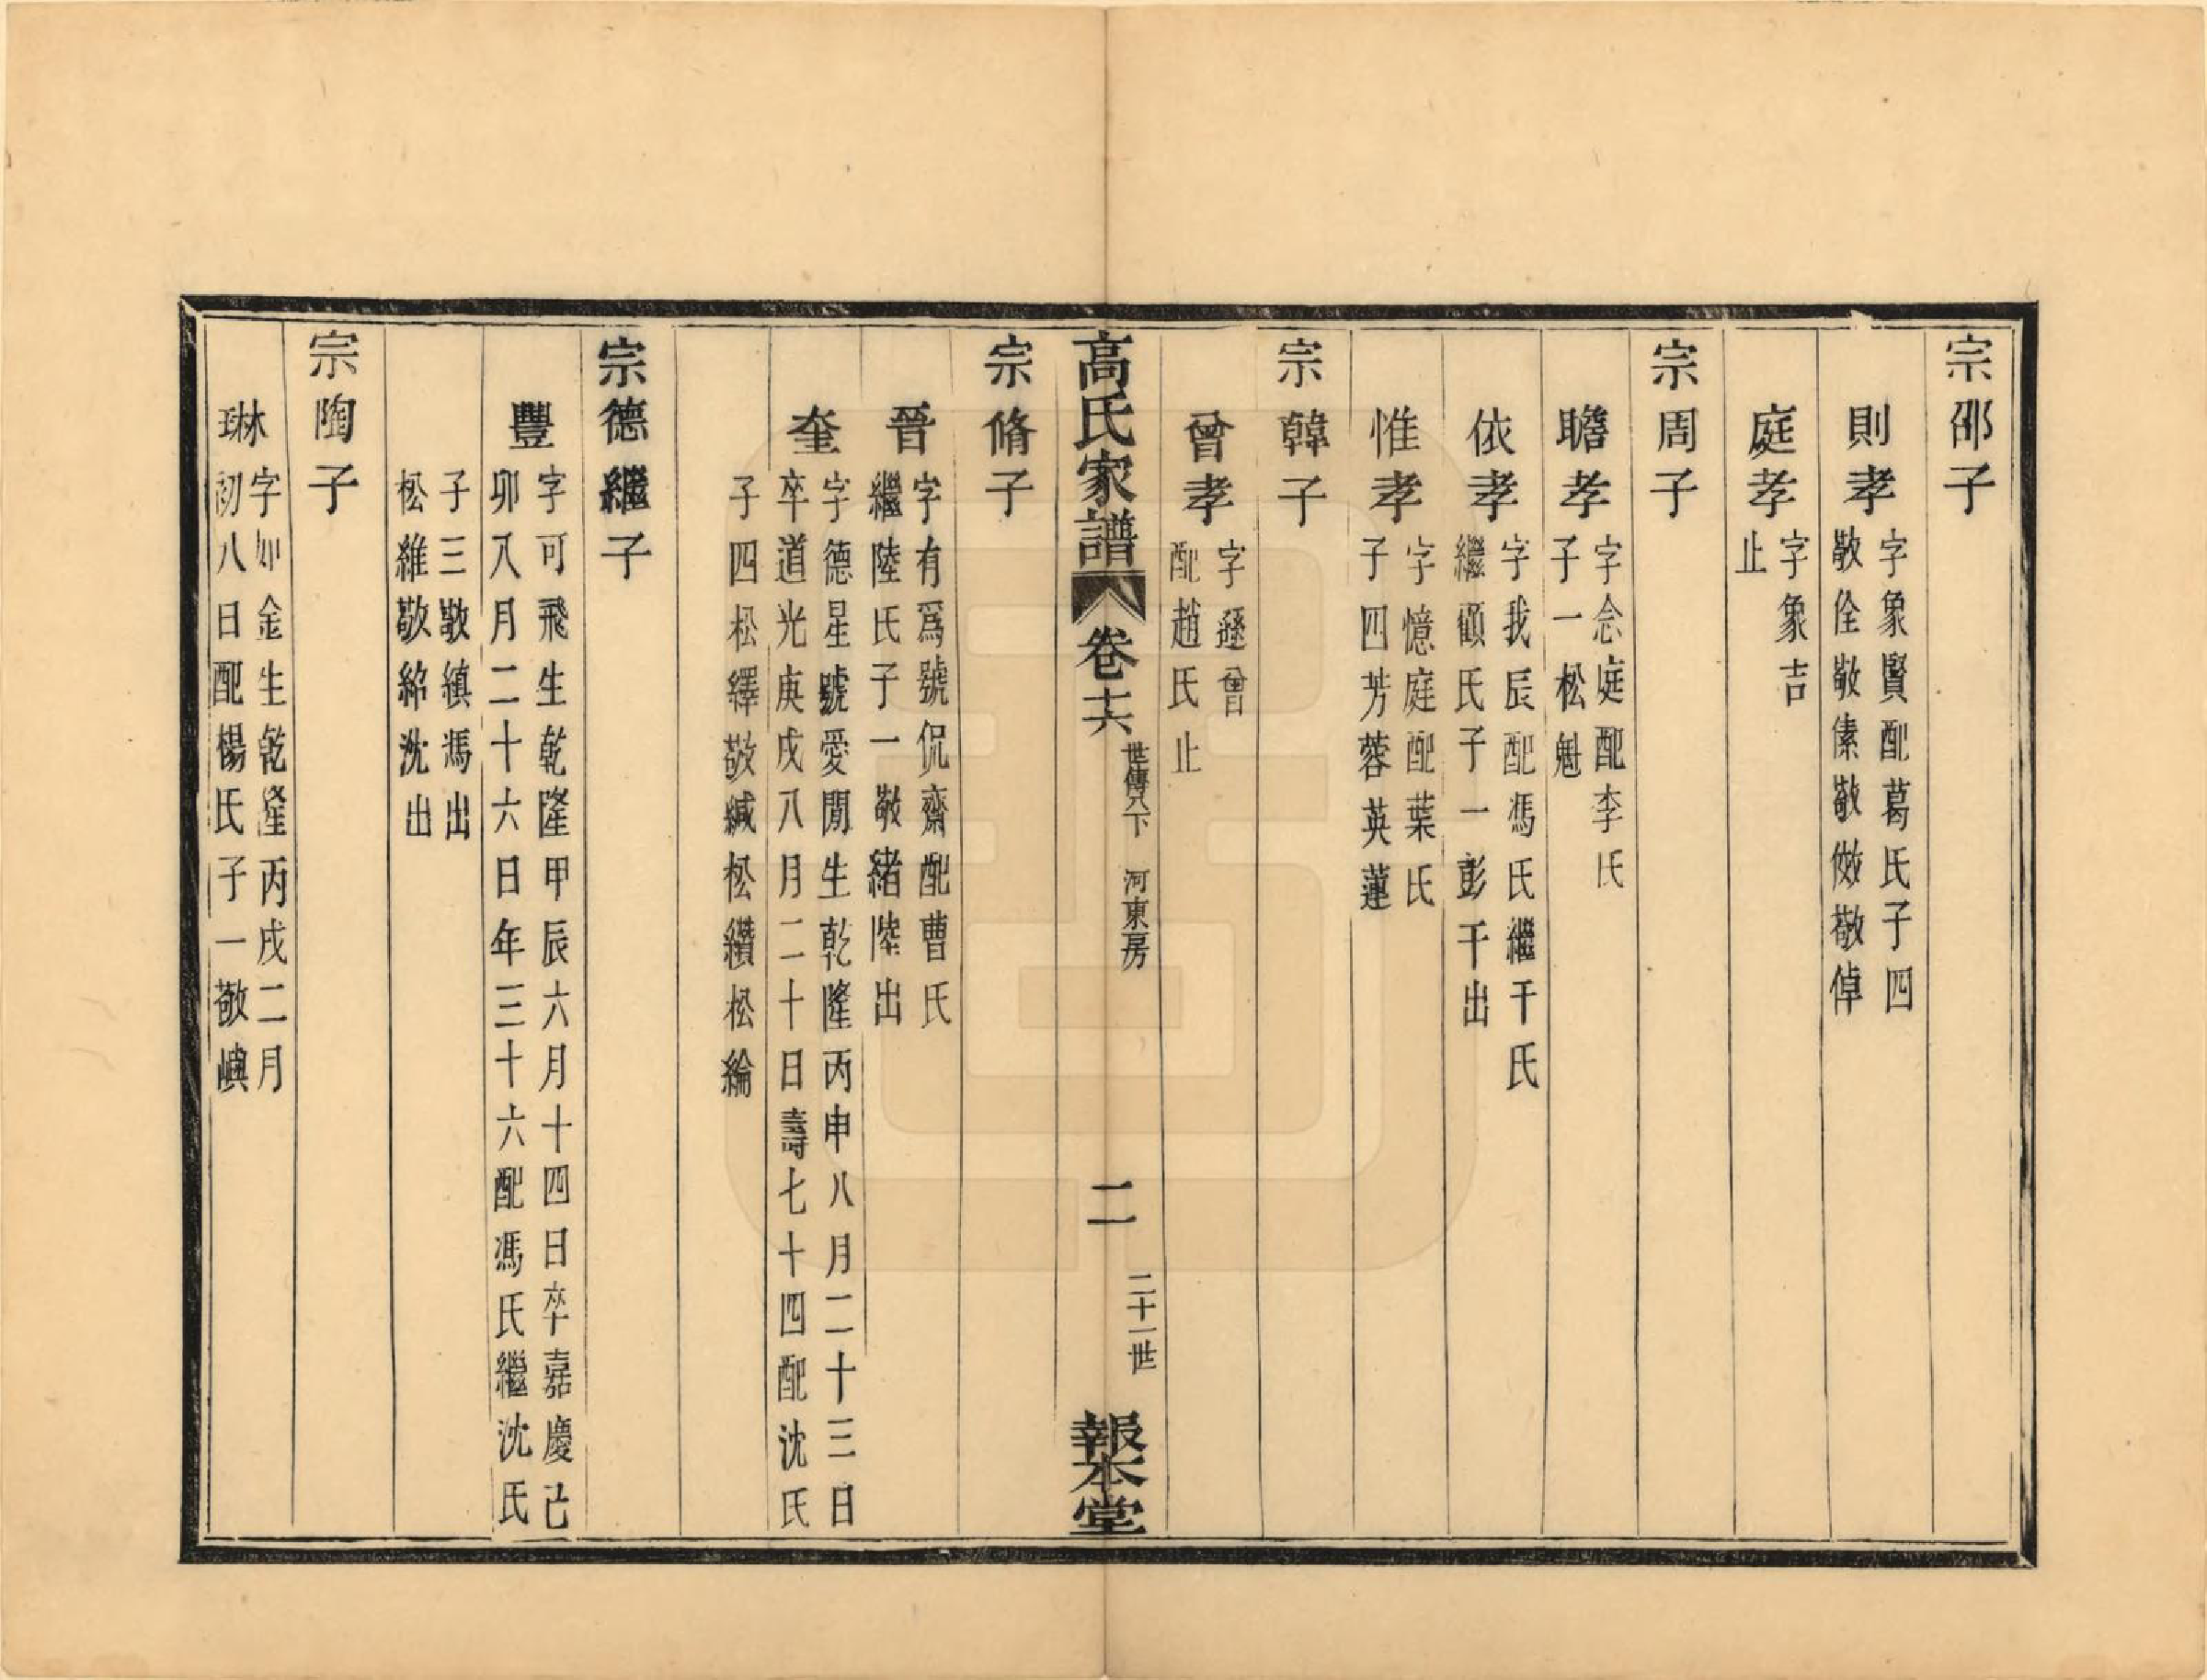 宗邵子
則孝
字象賢配葛氏子四
敬佺敬傃敬俲敬倬
庭孝
字象吉
止
宗周子
瞻孝
字念庭配李氏
子一松魁
依孝
字我辰配馮氏繼干氏
繼顧氏子一彭干出
惟孝
字憶庭配葉氏
子四芳蓉英蓮
宗韓子
曾孝
字遜曾
配趙氏止
高氏家譜
卷十六
世傳八下 河東房
二
二十一世
報本堂
宗脩子
晉
字有爲號侃齋配曹氏
繼陸氏子一敬緒陸出
奎
字德星號愛閒生乾隆丙申八月二十三日
卒道光庚戌八月二十日壽七十四配沈氏
子四松繹敬緘松纘松綸
宗德繼子
豐
字可飛生乾隆甲辰六月十四日卒嘉慶己
卯八月二十六日年三十六配馮氏繼沈氏
子三敬縝馮出
松維敬綿沈出
宗陶子
琳
字如金生乾隆丙戌二月
初八日配楊氏子一敬嶼